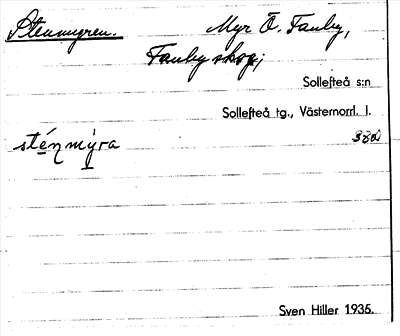 Stenmyren. Myr Ö. Tanby,
Tanby skog;
Sollefteå s:n
Sollefteå tg., Västernorrl. l.
sténmýra 380
Sven Hiller 1935.